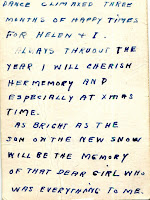 DANCE CLIMAXED THREE
MONTHS OF HAPPY TIMES
FOR HELEN & I.
ALLAYS THRUOUT THE
YEAR I WILL CHERISH
HER MEMORY AND
ESPECIALLY AT XMAS
TIME.
AS BRIGHT AS THE
SON ON THE NEW SNOW
WILL BE THE MEMORY
OF THAT DEAR GIRL WHO
WAS EVERYTHING TO ME.